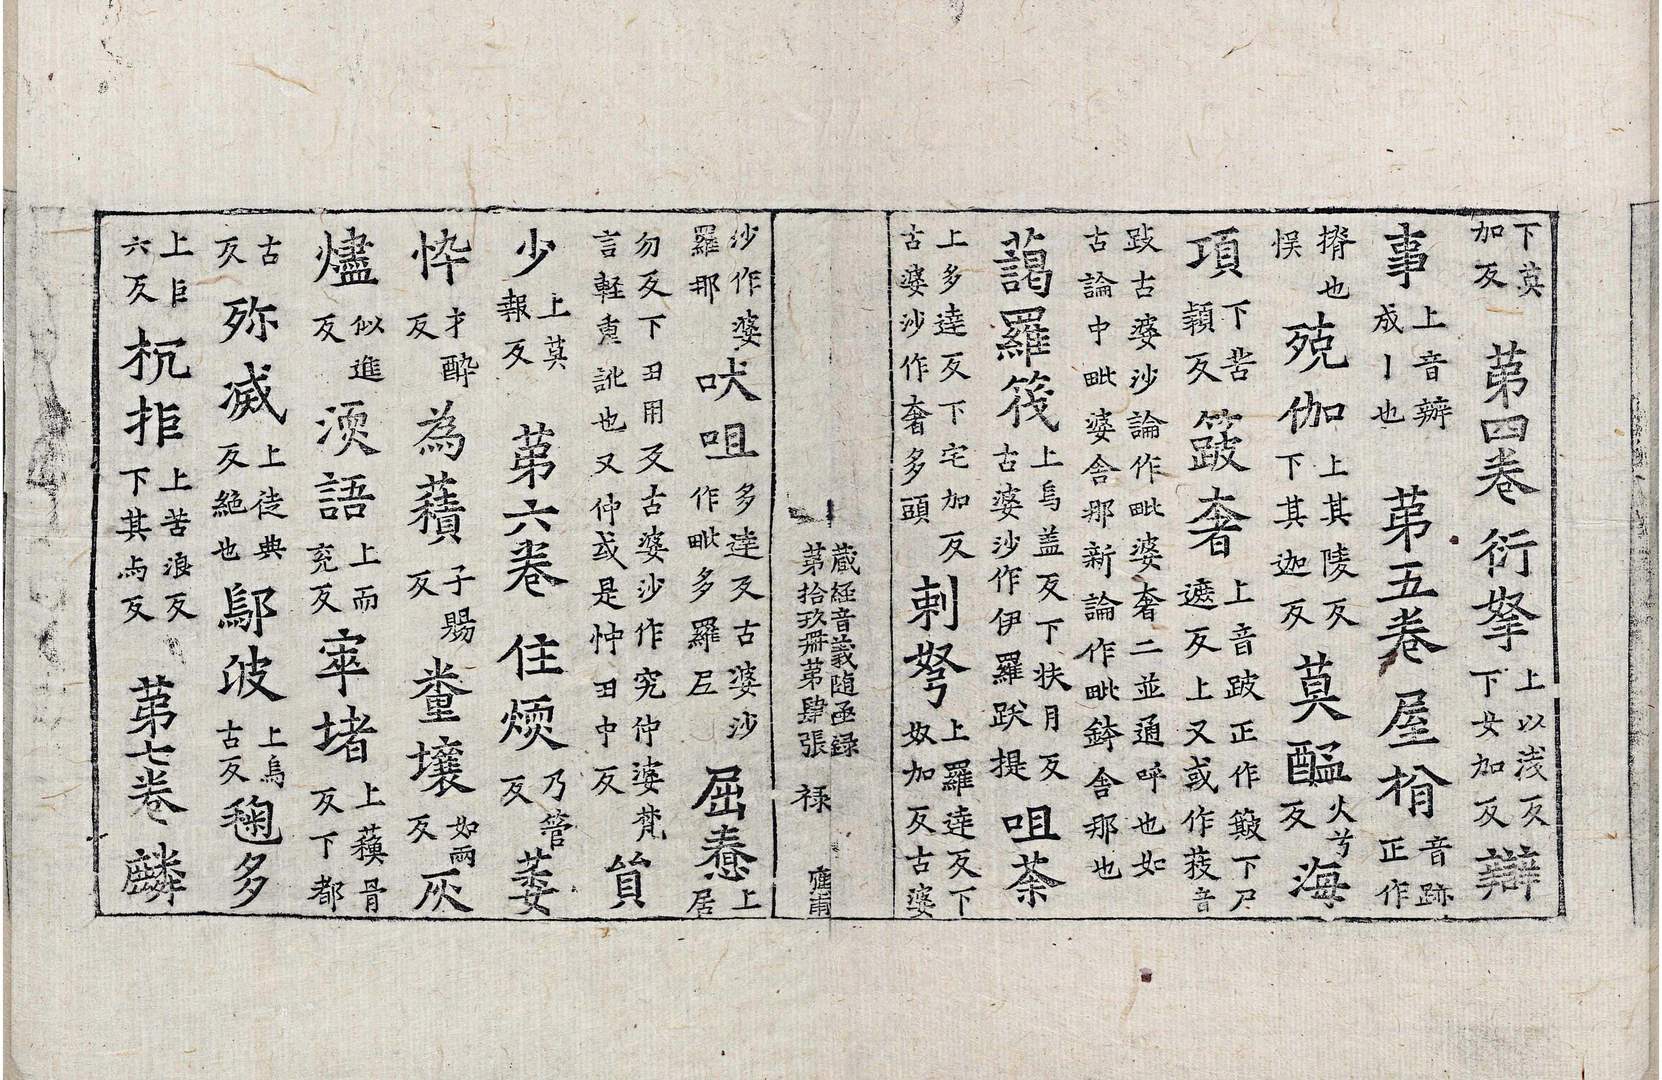 下莫加反　第四卷　衍拏上以淺反下女加反辯
事上音辦成丨也　第五卷　屋楈音跡正作
揟也悮　殑伽上其陵反下其迦反　莫醯火兮反海
項下苦穎反　䈳奢上音跛正作簸下尸遮反上又或作䔑音
跂古婆沙論作毗婆奢二並通呼也如古論中毗婆舍那新論作毗鉢舍那也
藹羅筏上烏盖反下扶月反古婆沙作伊羅跋提　咀荼
上多達反下宅加反古婆沙作奢多頭　剌拏上羅達反下奴加反古婆
蔵経音義随函録第拾玖冊第肆張　禄　應甫
沙作婆羅那　吠咀多達反古婆沙作毗多羅尼　屈憃上居
勿反下丑用反古婆沙作究仲婆梵言軽重訛也又仲或是忡丑中反　貟
少上莫報反　第六卷　住煗乃管反　萎
忰才醉反　為𧂐子賜反　糞壤如兩反灰
燼似進反　㴂語上而兖反　窣堵上蘓骨反下都
古反　弥㓕上徒典反絶也　鄔波上烏古反　毱多
上巨六反　杭拒上苦浪反下其与反　第七卷　麟